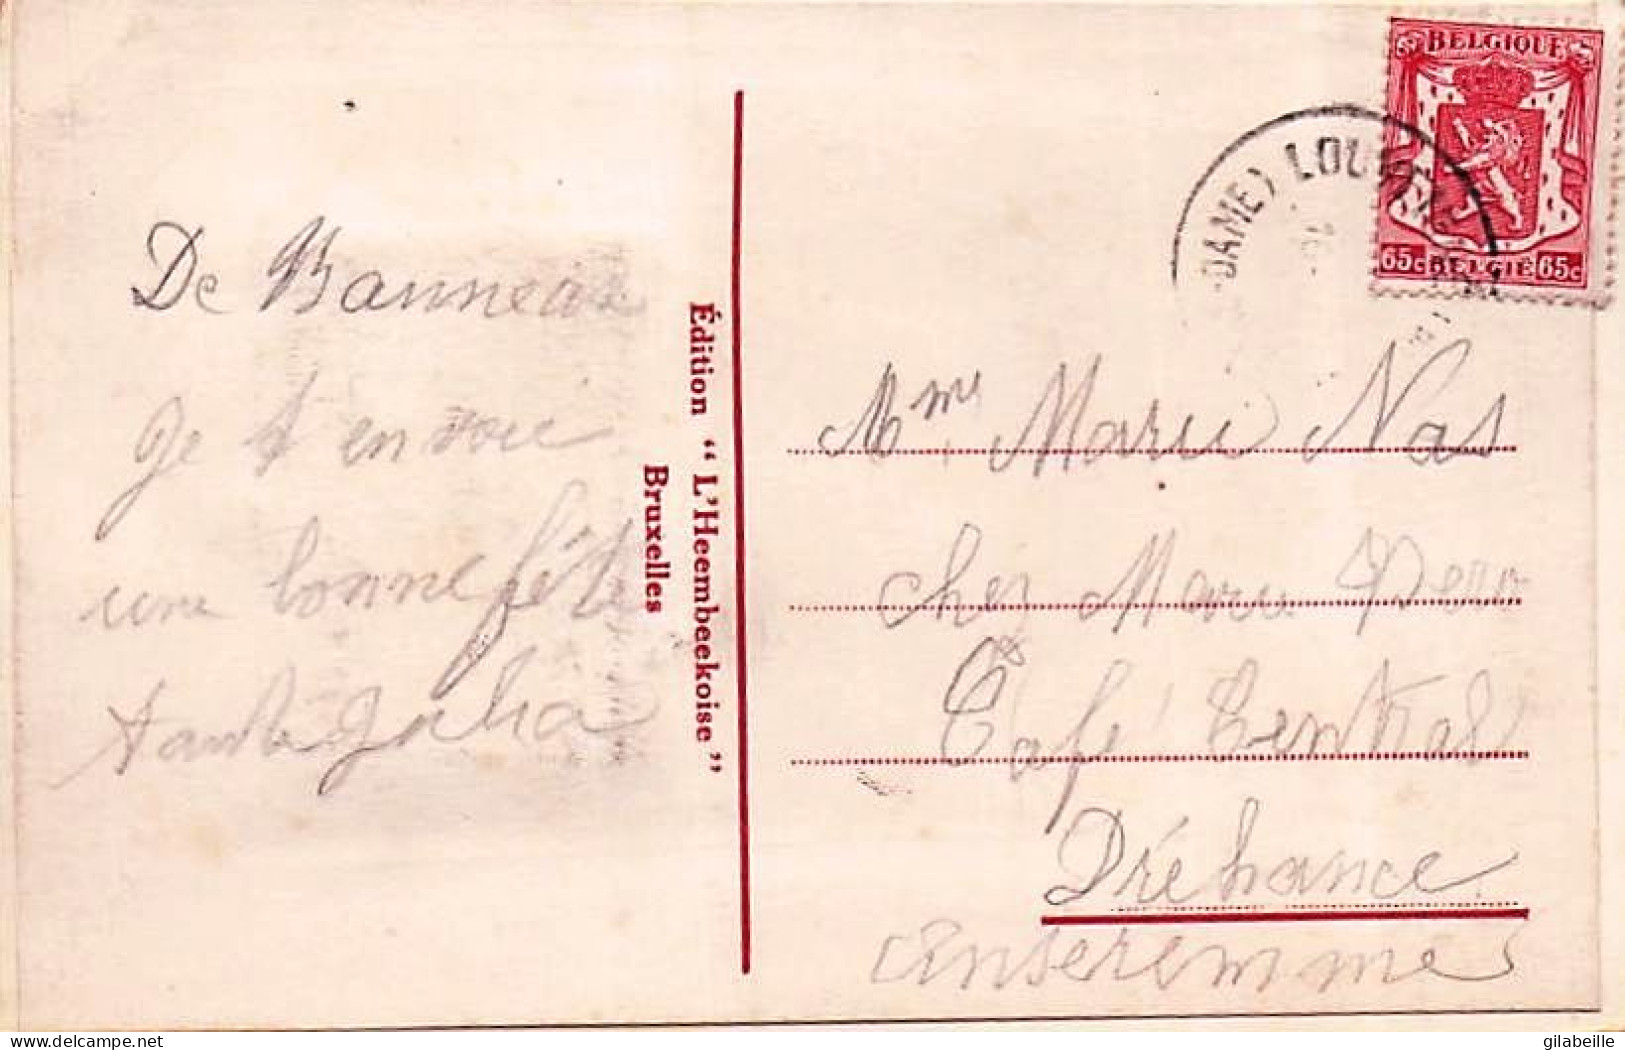 De Banneux
je t en voie
une bonne fête
tante Julia
Édition “ L'Heembeekoise ”
Bruxelles
BELGIQUE
65c BELGIË 65c
DAME) LOU
Mme Marie Nas
chez Marie
Café Central
Dréhance
Anseremme
gilabeille